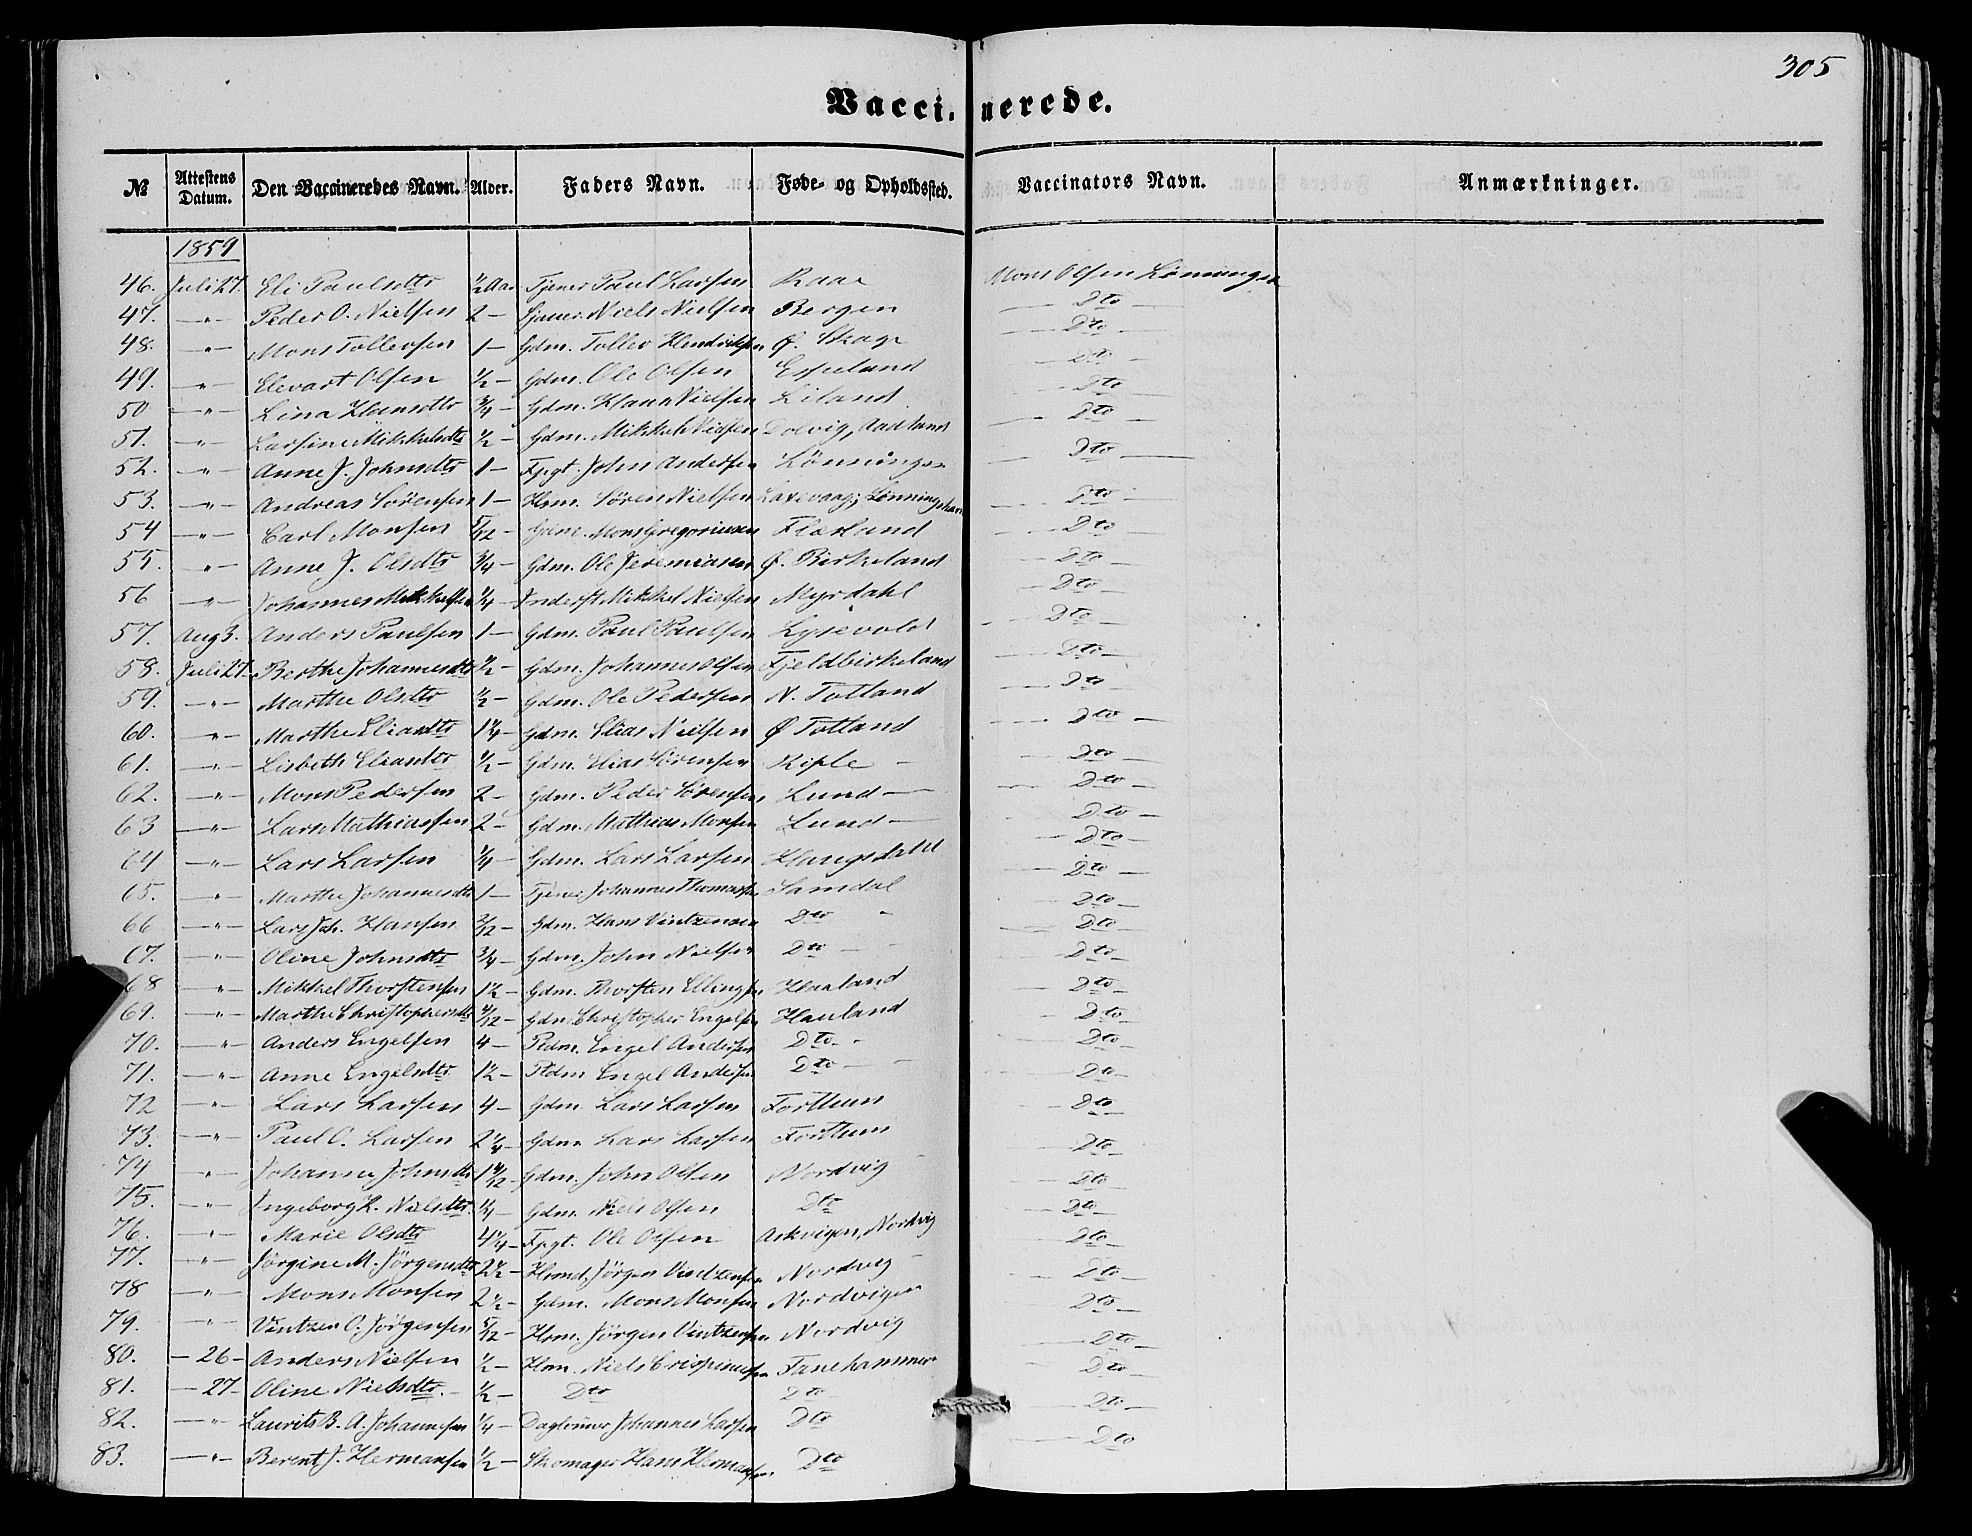 305
Vaccinerede.
№ Attestens Datum. Den Vaccineredes Navn. Alder. Faders Navn. Føde- og Opholdssted. Vaccinators Navn. Anmærkninger.
1859
46. Juli 27. Eli Paulsdtr ½ Aar Tjener Paul Larsen Raae Mons Olsen Lønningen
47. —"— Peder O. Nielsen 2 — Tjener Niels Nielsen Bergen — Dto —
48. —"— Mons Tollevsen 1 — Gdm. Tollev Hendriksen Ø. Skage — Dto —
49. —"— Elevart Olsen ½ — Gdm. Ole Olsen Espeland — Dto —
50 —"— Lina Hansdtr ¾ — Gdm. Hans Nielsen Liland — Dto —
51. —"— Larsine Mikkelsdtr ½ — Gdm. Mikkel Nielsen Dolvig, Aadland — Dto —
52. —"— Anne J. Johnsdtr 1 — Fpgt. John Andersen Lønningen — Dto —
53. —"— Andreas Sørensen 1 — Hsm. Søren Nielsen Laxevaag, Lønningshavn — Dto —
54 —"— Carl Monsen 5/12 — Gdm. Mons Gregoriusen Flesland — Dto —
55. —"— Anne J. Olsdtr ¾ — Gdm. Ole Jeremiasen Ø. Birkeland — Dto —
56 —"— Johannes Mikkelsen ¼ — Inderst Mikkel Nielsen Myrdahl — Dto —
57. Aug 3. Anders Paulsen 1 — Gdm. Paul Paulsen Lysevold — Dto —
58. Juli 27. Berthe Johannesdtr ½ — Gdm. Johannes Olsen Fjeldbirkeland — Dto —
59. —"— Marthe Olsdtr ½ — Gdm. Ole Pedersen N. Totland — Dto —
60. —"— Marthe Eliasdtr 1¼ — Gdm. Elias Nielsen Ø Totland — Dto —
61. —"— Lisbeth Eliasdtr ½ — Gdm. Elias Sørensen Riple — — Dto —
62. —"— Mons Pedersen 2 — Gdm. Peder Sørensen Lund — — Dto —
63 —"— Lars Mathiassen 2 — Gdm. Mathias Monsen Lund — — Dto —
64 —"— Lars Larsen ¼ — Gdm. Lars Larsen Haugsdahl — Dto —
65. —"— Marthe Johannesdtr 1 — Tjener Johannes Thomassen Samdal — Dto —
66 —"— Lars Joh. Hansen 2/12 — Gdm. Hans Vintzensen Dto — Dto —
67. —"— Oline Johnsdtr ¾ — Gdm. John Nielsen Dto — — Dto —
68 —"— Mikkel Thorstensen 1½ — Gdm. Thorsten Ellingsen Haaland — Dto —
69. —"— Marthe Christophersdtr 4/12 — Gdm. Christopher Engelsen Hauland — Dto —
70. —"— Anders Engelsen 4 — Pldm. Engel Andersen Dto — — Dto —
71. —"— Anne Engelsdtr 1½ — Pldm Engel Andersen Dto — — Dto —
72 —"— Lars Larsen 4 — Gdm. Lars Larsen Forthun — Dto —
73. —"— Paul O. Larsen 2¼ — Gdm Lars Larsen Forthun — Dto —
74 —"— Johanna Johnsdtr 1 4/12 — Gdm. John Olsen Nordvig — Dto —
75. —"— Ingeborg L. Nielsdtr ¼ — Gdm. Niels Olsen Dto — Dto —
76. —"— Marie Olsdtr 4¼ — Fpgt. Ole Olsen Askvigen, Nordvig — Dto —
77. —"— Jørgine M. Jørgensdtr 2½ — Hsmd. Jørgen Vintzensen Nordvig — Dto —
78 —"— Mons Monsen 2½ — Gdm. Mons Monsen Nordvigen — Dto —
79. —"— Vintzen O. Jørgensen 5/12 — Hsm. Jørgen Vintzensen Nordvig — Dto —
80. — 26 — Anders Nielsen ½ — Hsm. Niels Crispinussen Tanehammer — Dto —
81. — 27 — Oline Nielsdtr. ½ — Dto Dto — Dto —
82. —"— Laurits B. A. Johannesen ¼ — Daglønner Johannes Larsen Dto — Dto —
83. —"— Berent J. Hermansen ½ — Skomager Hans Hermansen Dto — Dto